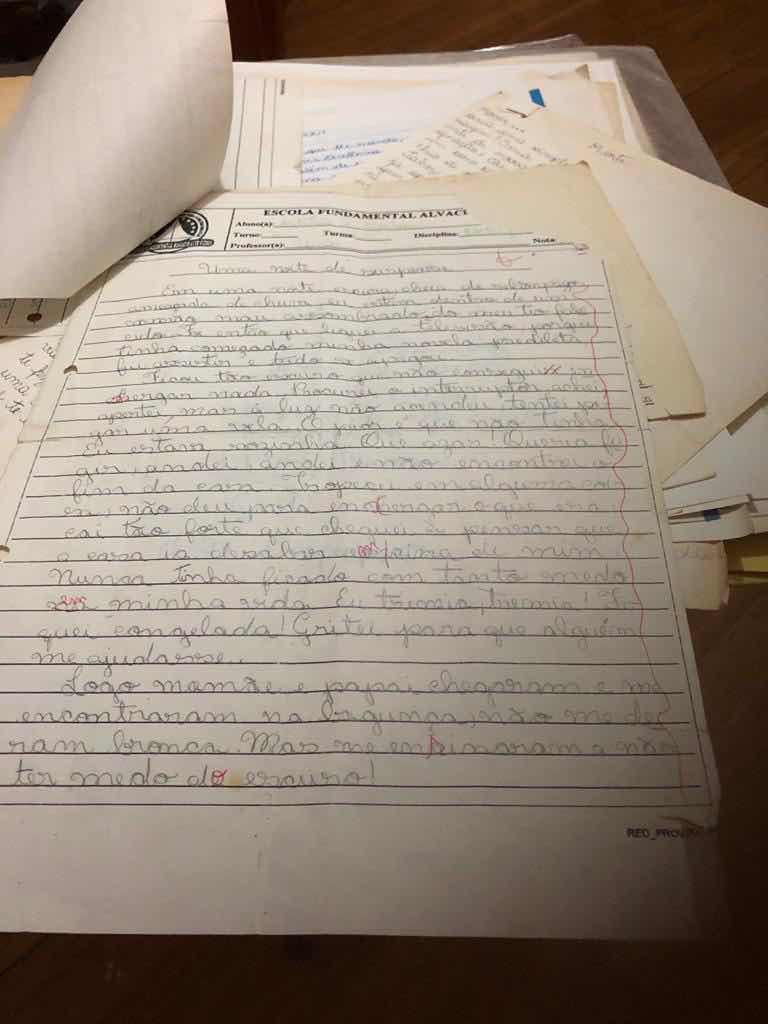 ESCOLA FUNDAMENTAL ALVACI
Aluno(a):
Turno: Turma: Disciplina:
Professor(a): Nota:
Uma noite de suspense
Em uma noite escura cheia de relâmpagos,
de chuva, eu estava dentro de um
mau assombrado, do meu tio fale
cido. Foi então que liguei a televisão, porque
tinha começado minha novela predileta
fui assistir e tudo se apagou.
Ficou tão escuro que não consegui en
xergar nada. Procurei o interruptor, achei,
apertei, mas a luz não acendeu, tentei pe
gar uma vela. O pior é que não tinha
eu estava sozinha. Que azar! Queria fu
gir, andei, andei e não encontrei o
fim da casa. Tropecei em alguma coi
sa, não deu para enxergar o que era,
cai tão forte que cheguei à pensar que
a casa ia desabar em cima de mim.
Nunca tinha ficado com tanto medo
em minha vida. Eu tremia, tremia! Fi-
quei congelada! Gritei para que alguém
me ajudasse.
Logo mamãe e papai chegaram e me
encontraram na bagunça, não me de
ram bronca. Mas me ensinaram a não
ter medo do escuro!